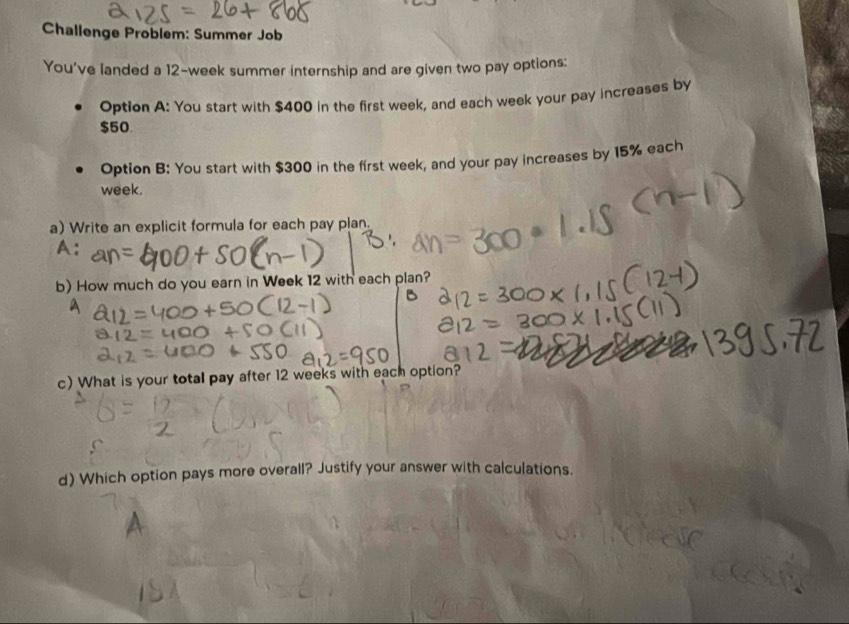 a125 = 26+ 868
Challenge Problem: Summer Job
You've landed a 12-week summer internship and are given two pay options:
• Option A: You start with $400 in the first week, and each week your pay increases by
$50.
• Option B: You start with $300 in the first week, and your pay increases by 15% each
week.
a) Write an explicit formula for each pay plan.
A: an=400+50(n-1) | B: an=300 • 1.15 (n-1)
b) How much do you earn in Week 12 with each plan?
A a12=400+50(12-1)
a12=400 +50(11)
a12=400 + 550 a12=950
B a12=300×1.15(12-1)
a12= 300×1.15(11)
a12= 1395.72
c) What is your total pay after 12 weeks with each option?
12
2
d) Which option pays more overall? Justify your answer with calculations.
A